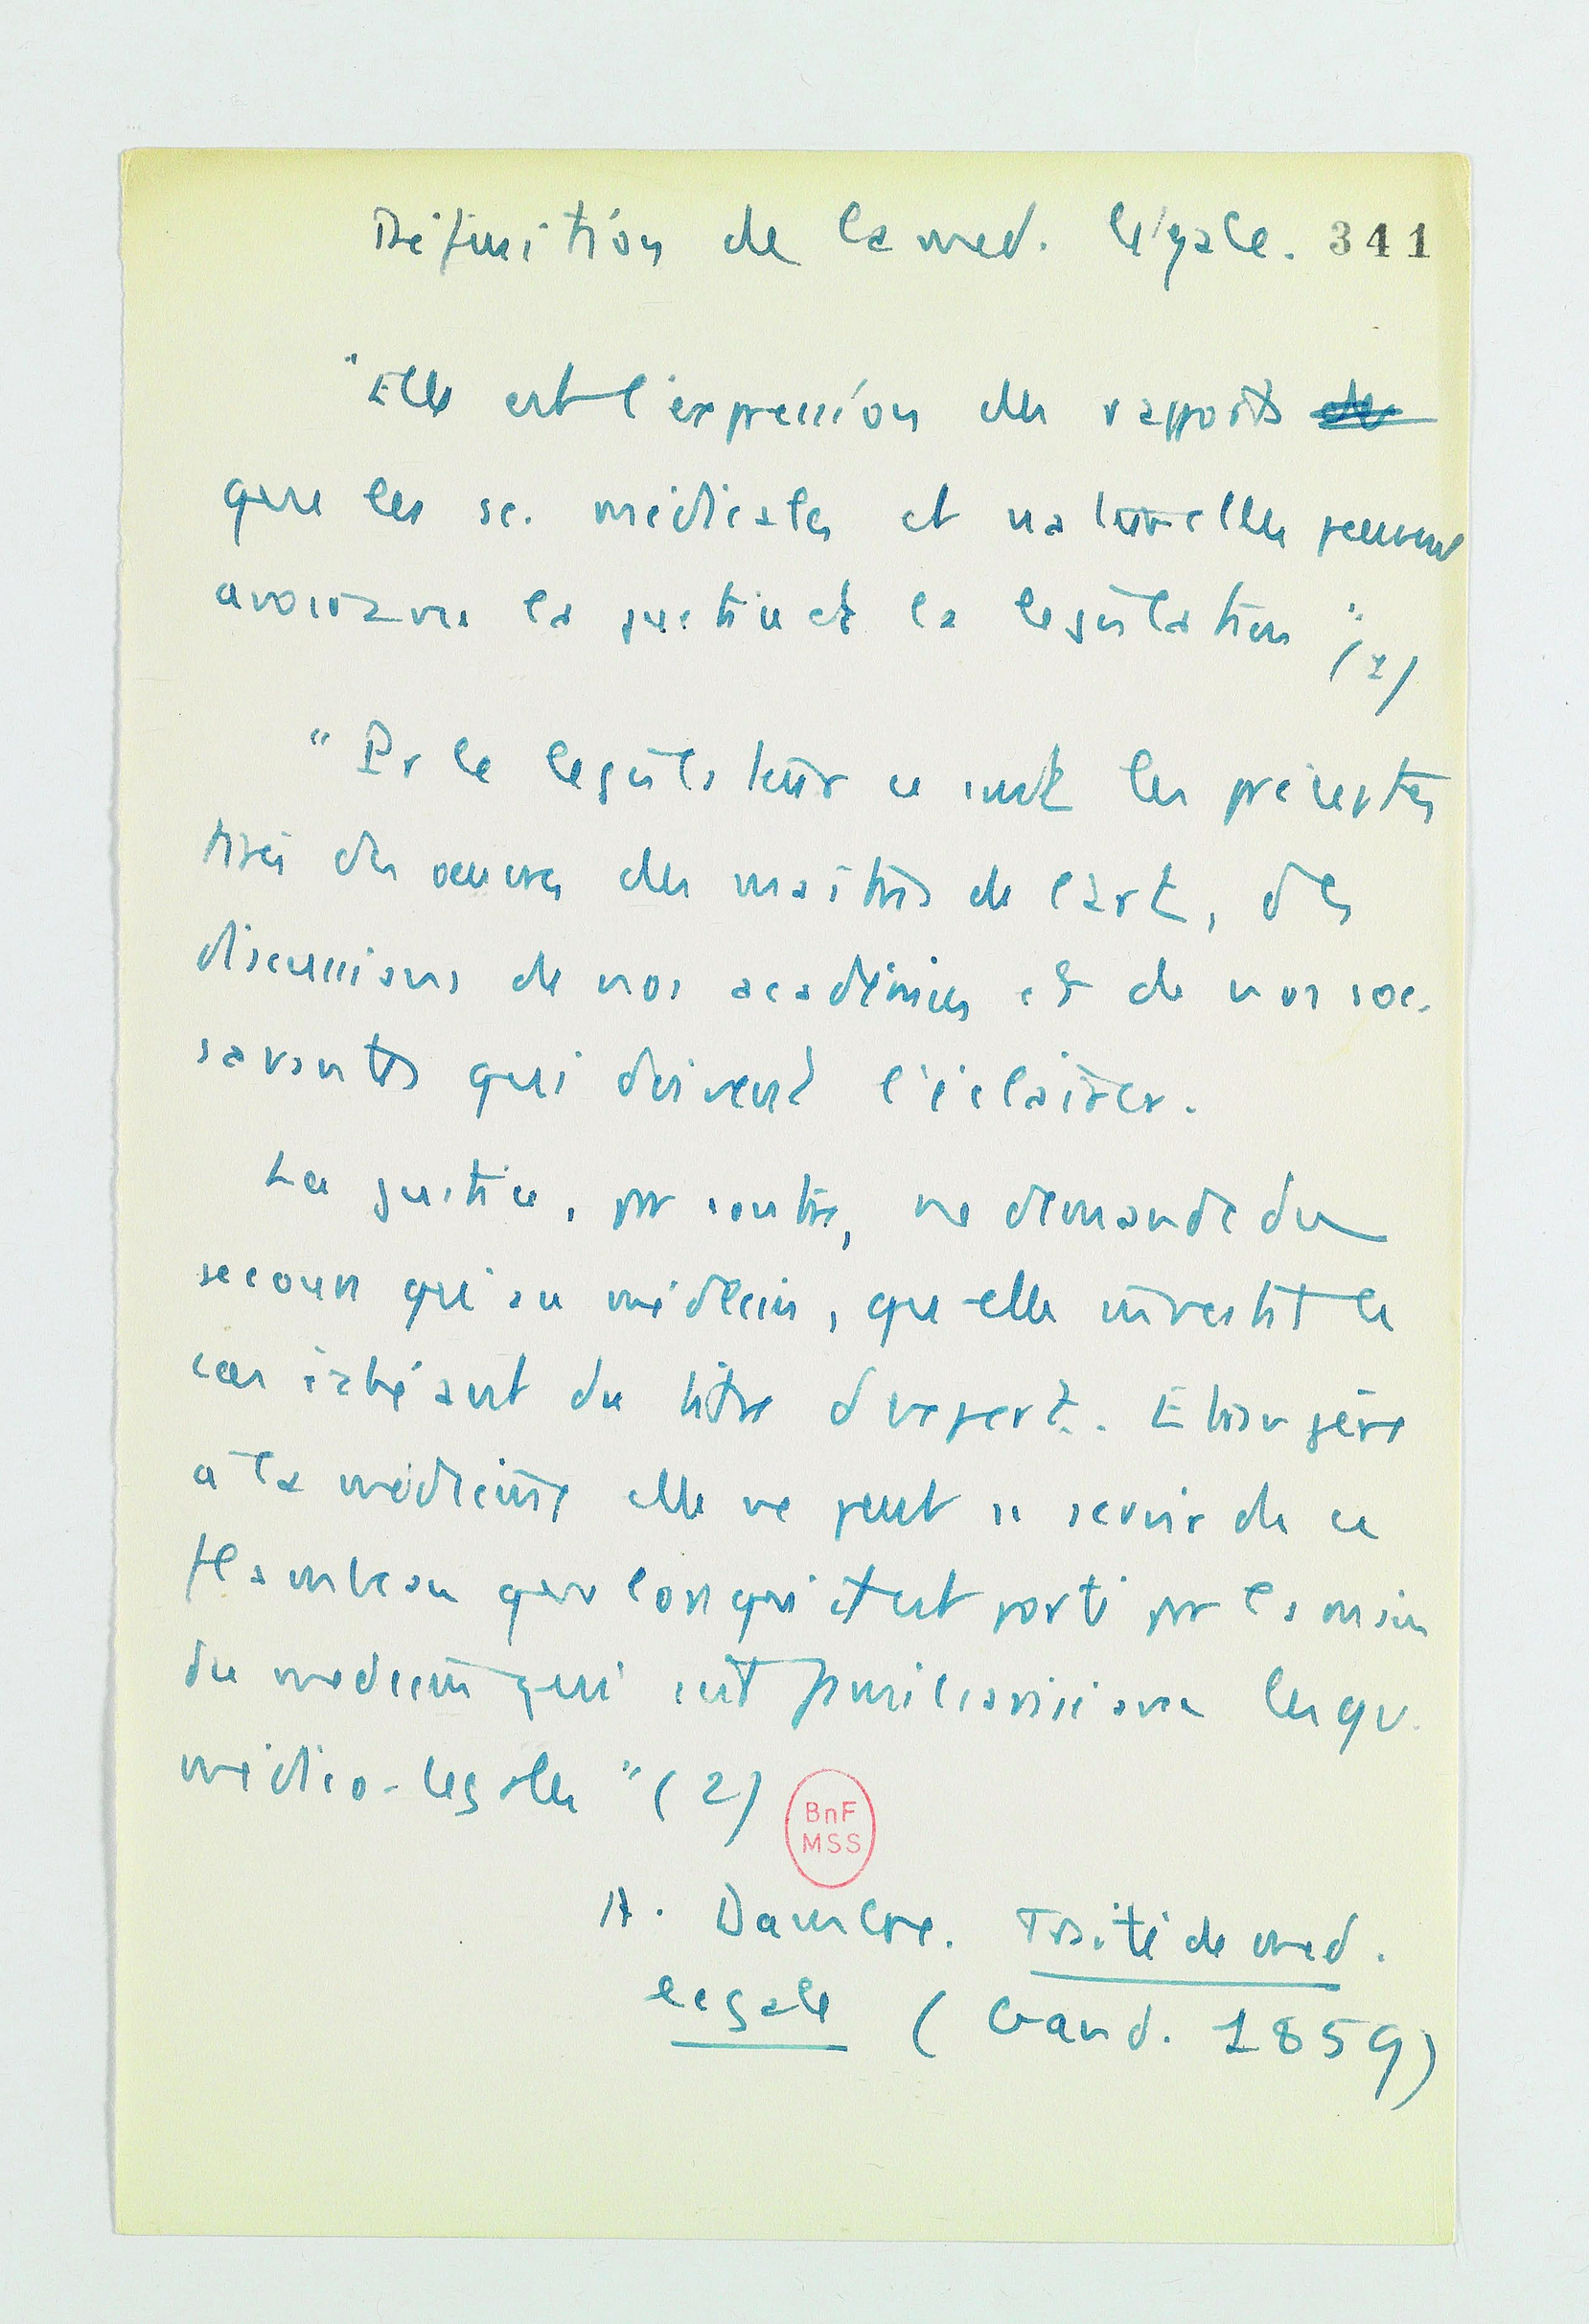 Définition de la med. légale. 341
"Elle est l'expression des rapports
que les sc. médicales et naturelles peuvent
avoir avec la justice et la législation" (1)
"Pr le législateur ce sont les préceptes
tirés des oeuvres des maîtres de l'art, des
discussions de nos académies et de nos soc.
savantes qui doivent l'éclairer.
La justice, par contre, ne demande du
secours qu'au médecin, qu'elle investit le
cas échéant du titre d'expert. Etrangère
à la médecine elle ne peut se servir de ce
flambeau que lorsqu'il est porté par la main
du medecin qui seul les qu.
médico-légales" (2)
BnF
MSS
A. Traité de med.
légale (Gand. 1859)